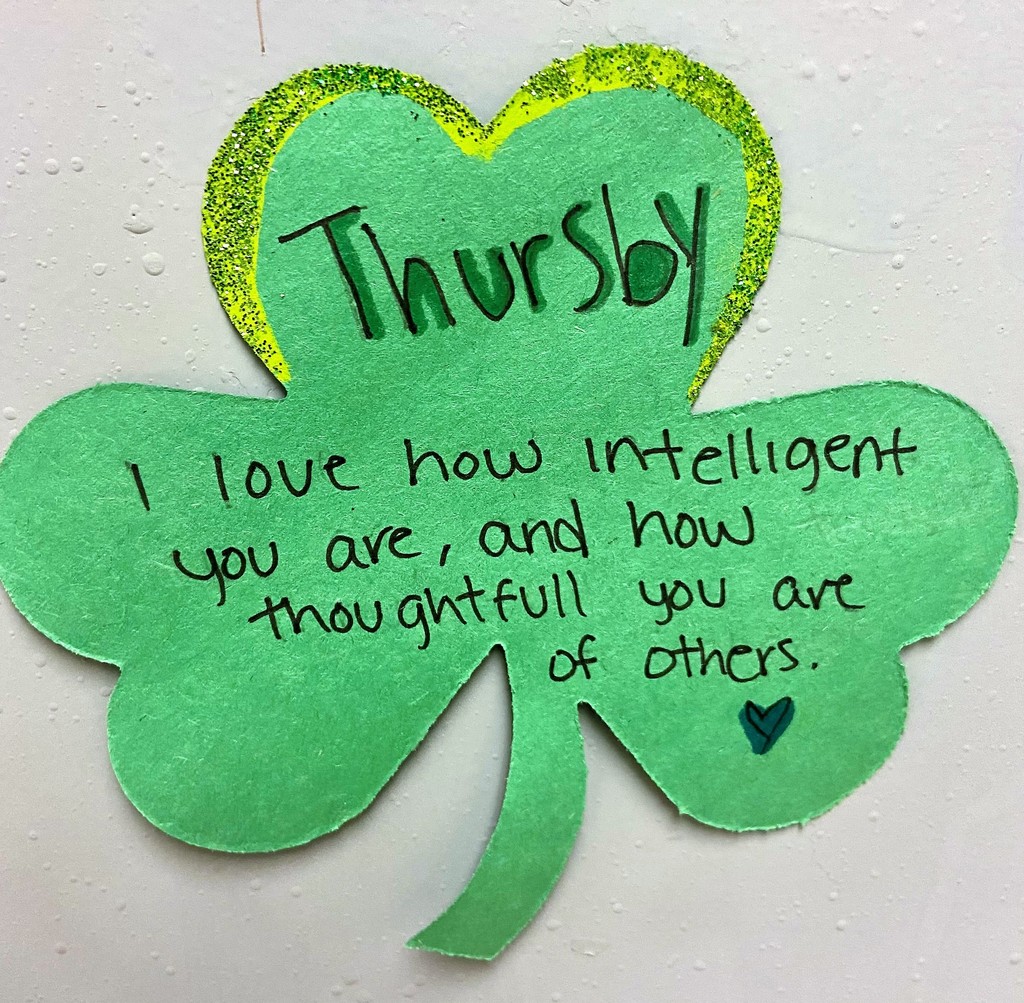 Thursby
I love how intelligent
you are, and how
thoughtfull you are
of others.